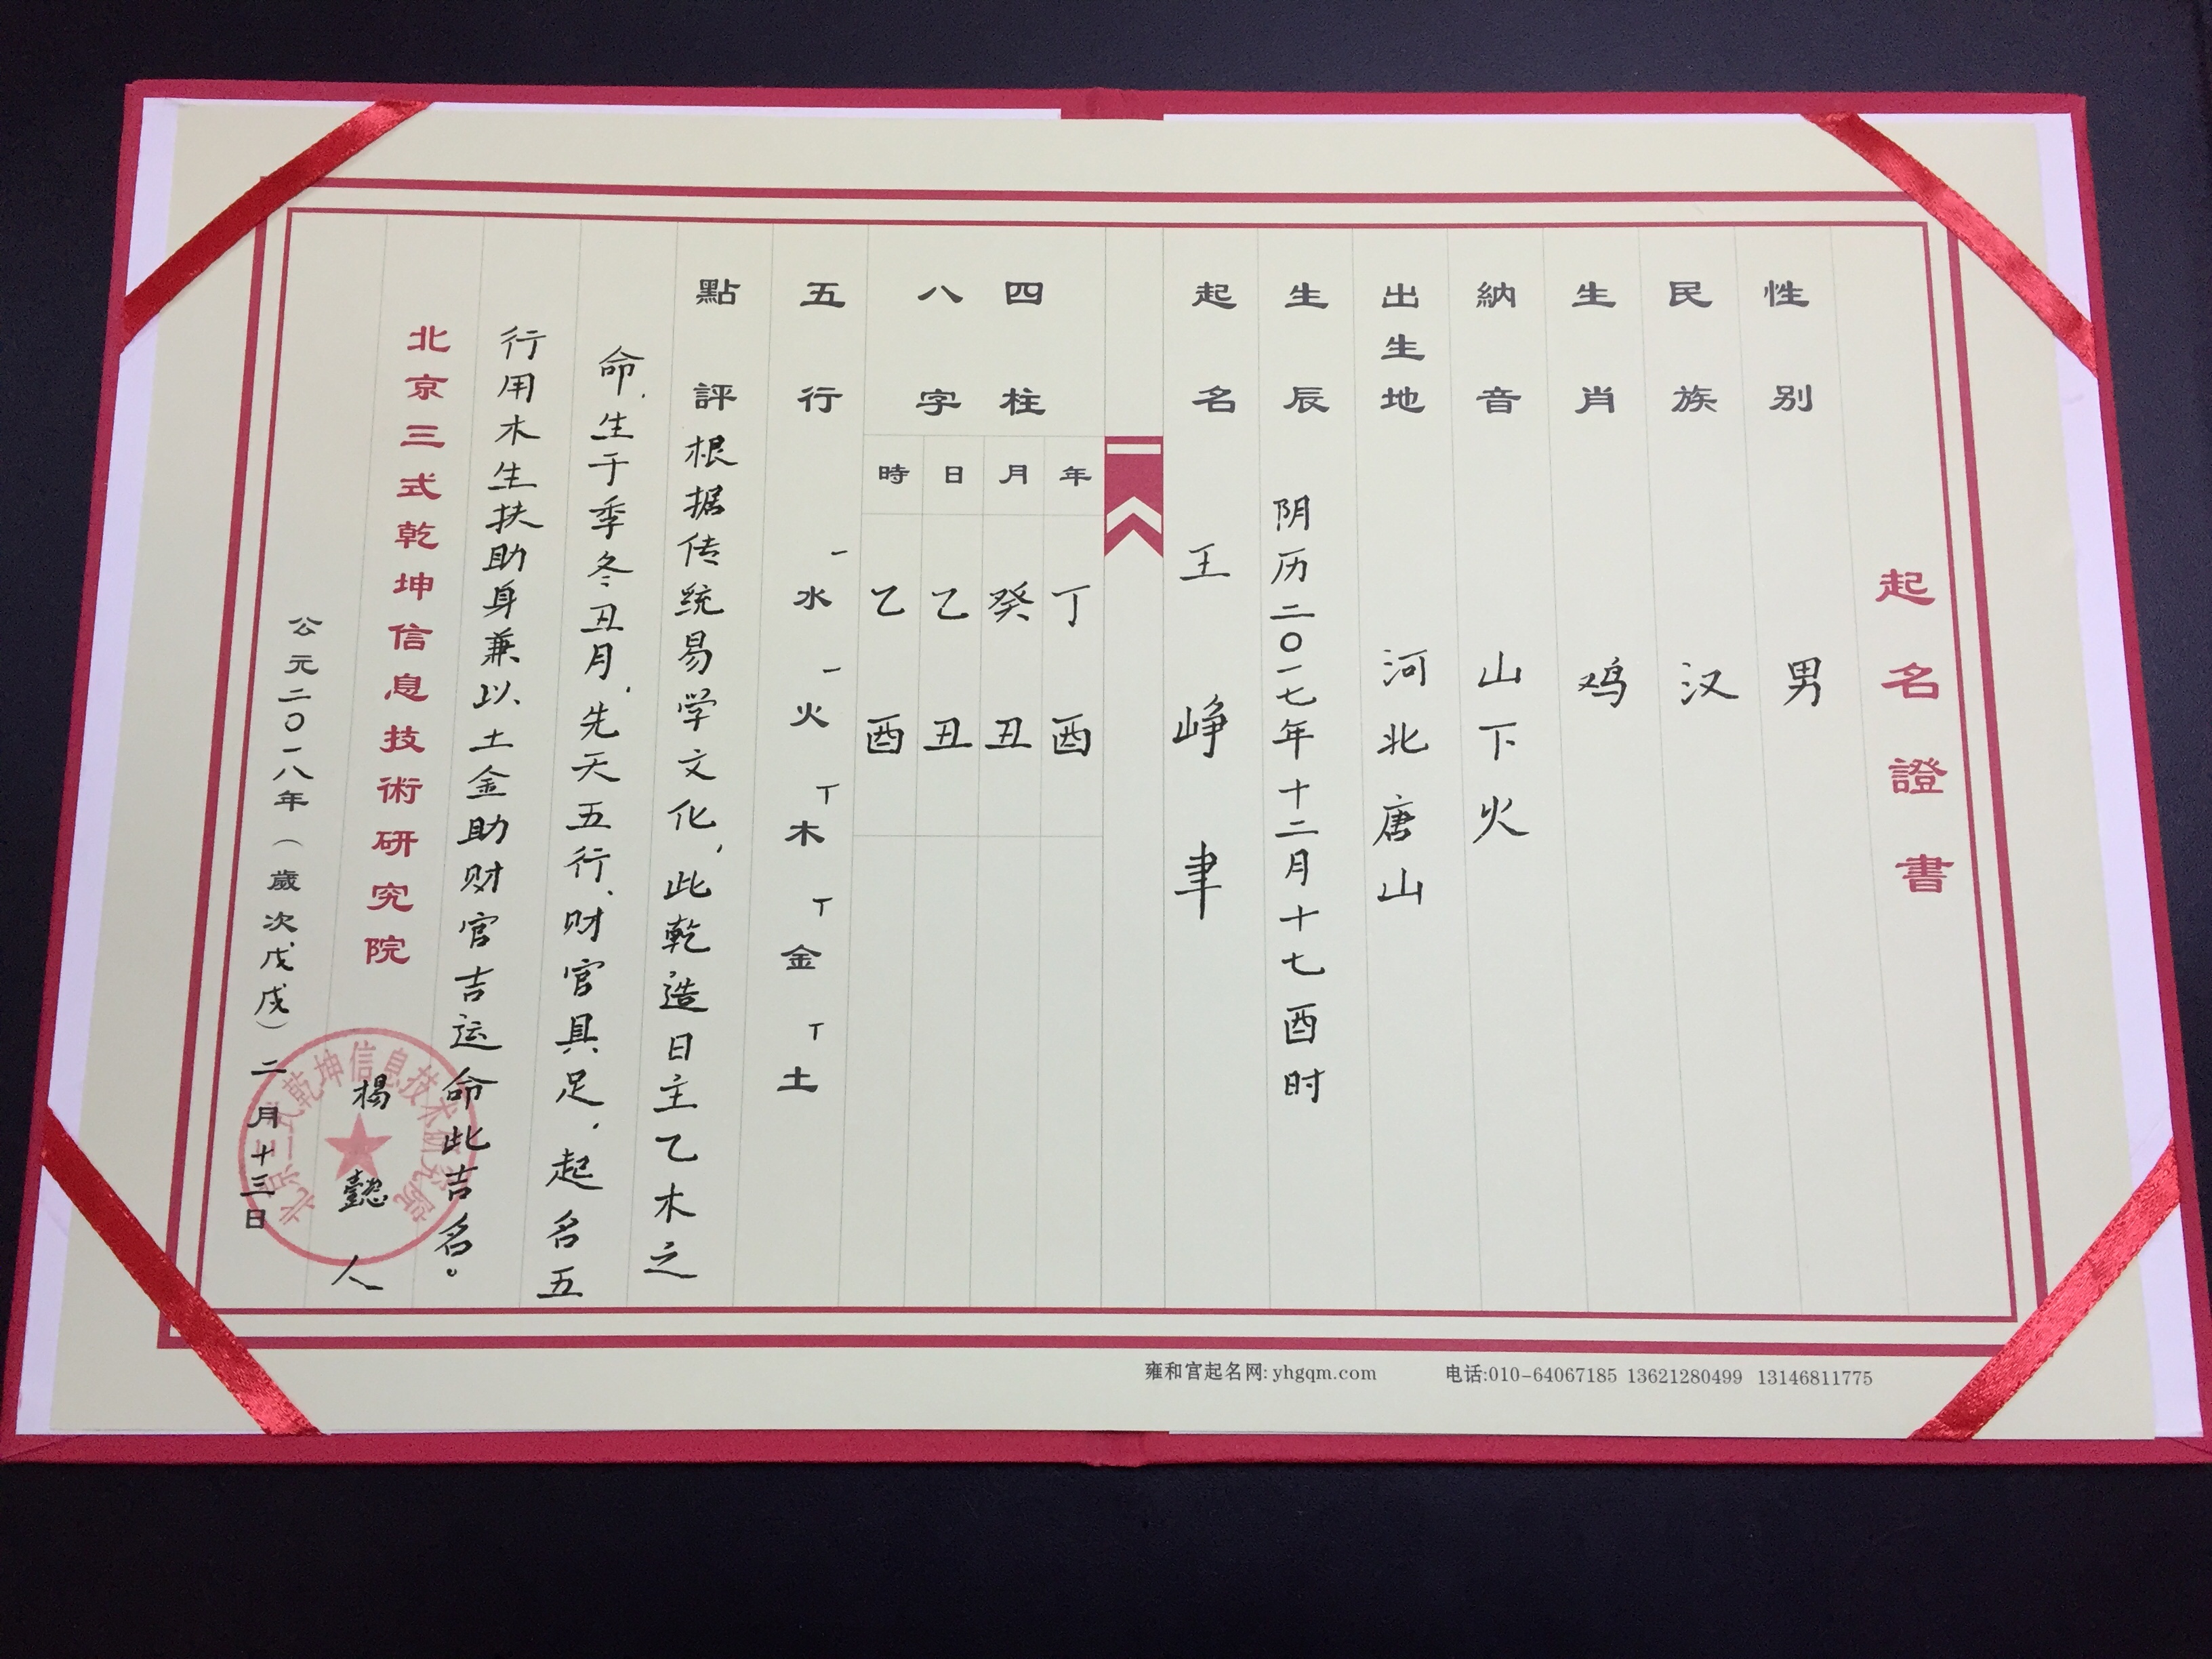 起名證書
性别 男
民族 汉
生肖 鸡
納音 山下火
出生地 河北唐山
生辰 阴历二〇一七年十二月十七酉时
起名 王峥聿
四柱八字
年 丁酉
月 癸丑
日 乙丑
時 乙酉
五行 一水 一火 丅木 丅金 丅土
點評 根据传统易学文化,此乾造日主乙木之
命,生于季冬丑月,先天五行,财官具足,起名五
行用木生扶助身兼以土金助财官吉运命此吉名。
北京三式乾坤信息技術研究院
楊懿人
公元二〇一八年(歲次戊戌)二月十三日
北京三式乾坤信息技术研究院
雍和宫起名网: yhgqm.com 电话:010-64067185 13621280499 13146811775